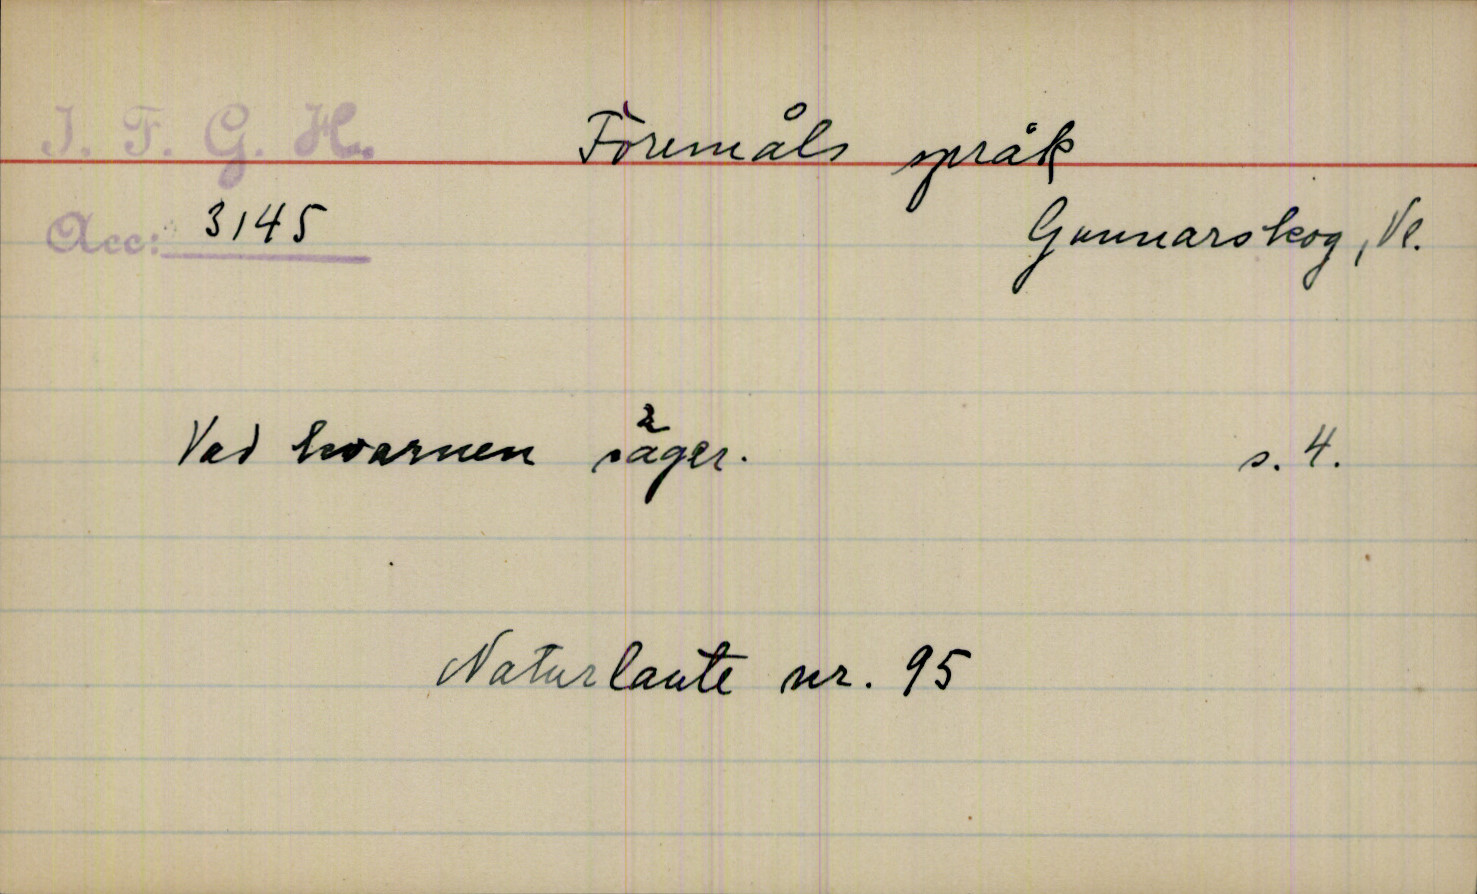 I. F. G. H.
Föremåls språk
Acc: 3145
Gunnarskog, Vl.
Vad kvarnen säger. s. 4.
Naturlaute nr. 95